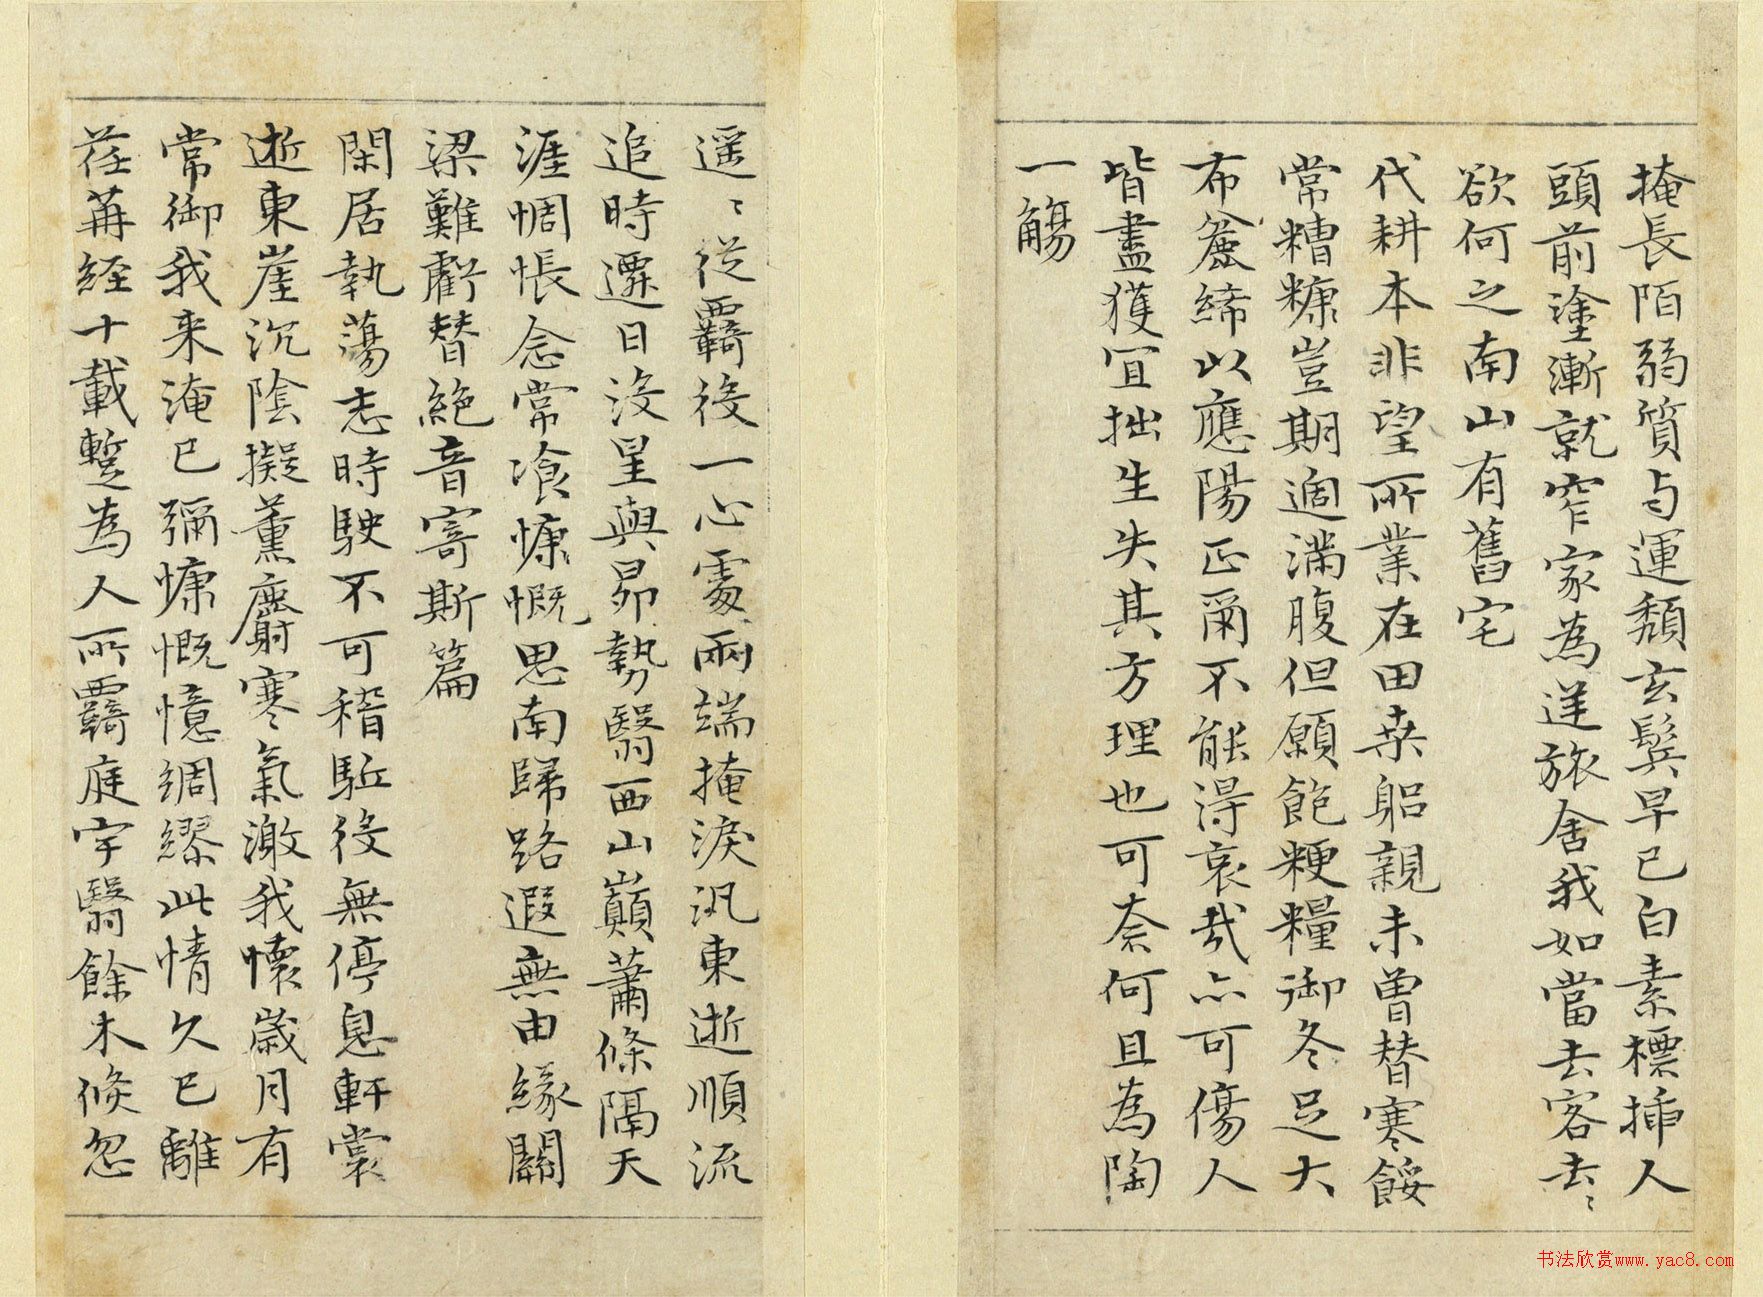 掩長陌弱質与運頹玄鬂早已白素標插人
頭前塗漸就窄家為逆旅舍我如當去客去〻
欲何之南山有舊宅
代耕本非望所業在田桒躳親未曽替寒餒
常糟糠豈期適滿腹但願飽粳糧御冬足大
布麄絺以應陽正爾不能得哀哉亦可傷人
皆盡獲宜拙生失其方理也可奈何且為陶
一觴
遥〻從羇役一心處兩端掩淚汎東逝順流
追時遷日沒星與昴勢翳西山巔蕭條隔天
涯惆悵念常飡慷慨思南歸路遐無由緣關
梁難虧替絕音寄斯篇
閑居執蕩志時駛不可稽駈役無停息軒裳
逝東崖沉陰擬薰麝寒氣激我懷歲月有
常御我来淹已彌慷慨憶綢繆此情久已離
荏苒経十載蹔為人所羇庭宇翳餘木倏忽
书法欣赏www.yac8.com